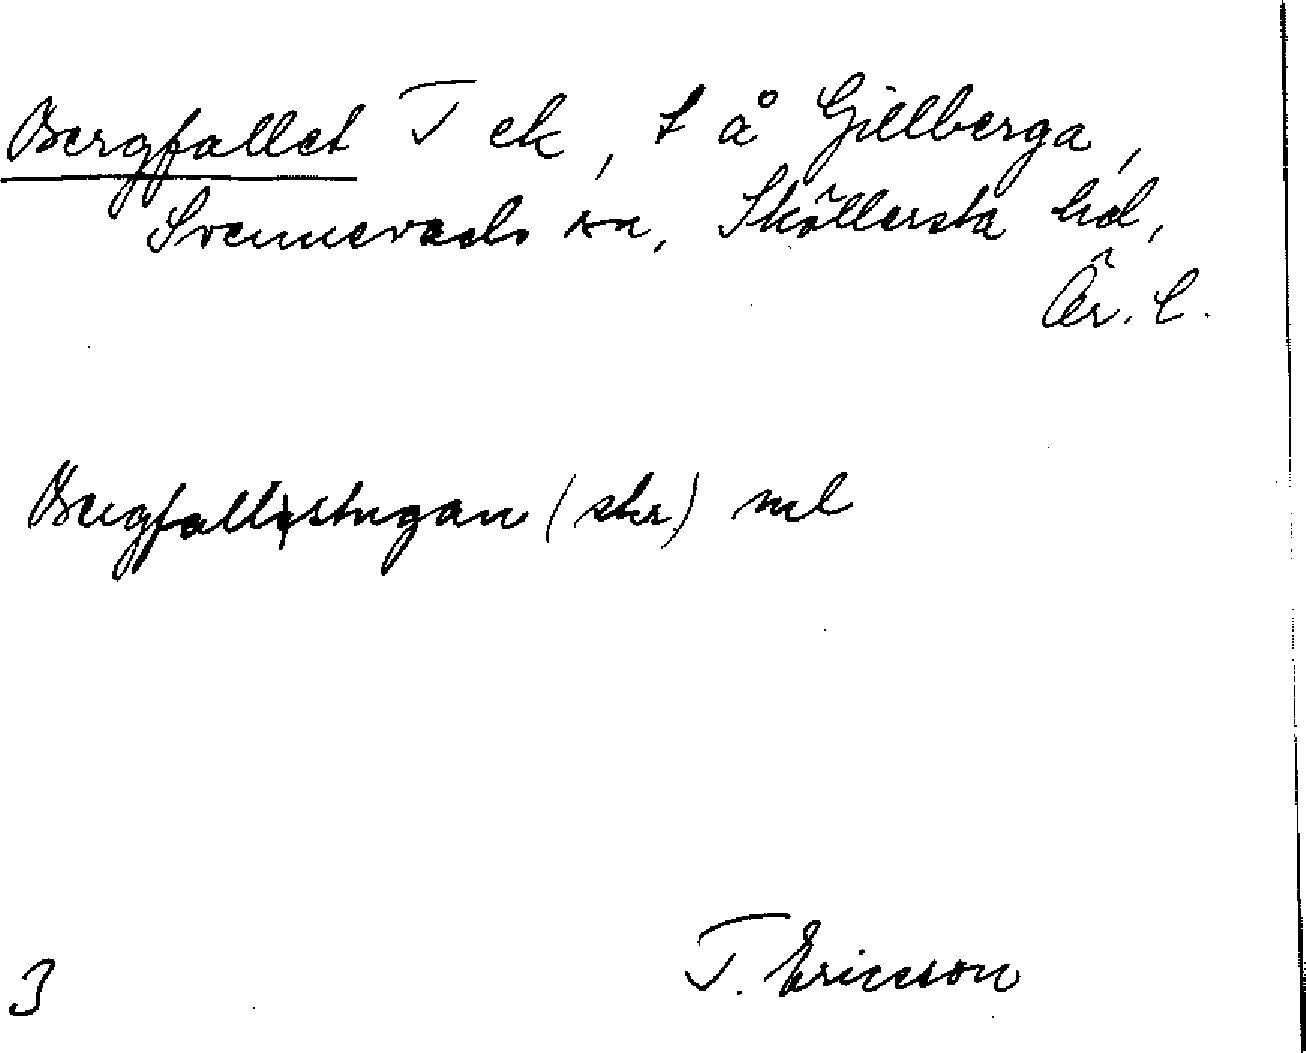 Bergfallet T ek, t å Gillberga,
Svennevads sn, Sköllersta hd,
Ör. l.
Bergfallstugan (skr) ml
T. Ericsson
3